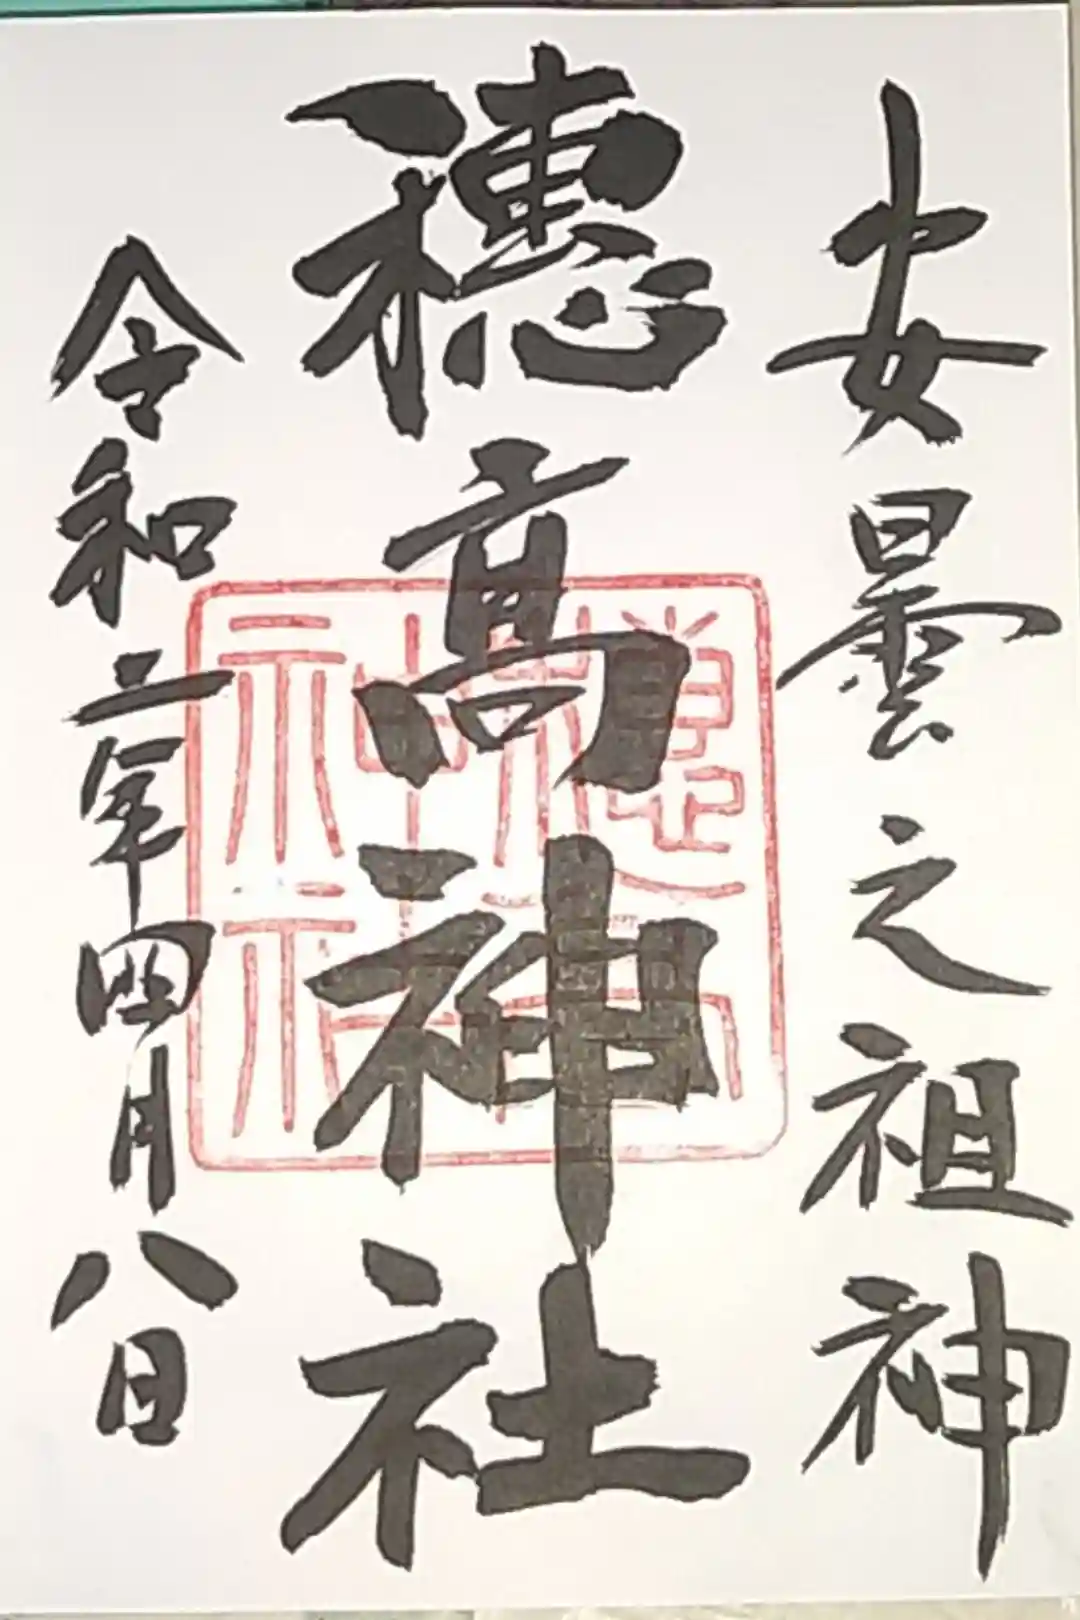 安曇之祖神
穂高神社
令和二年四月八日
穗高神社